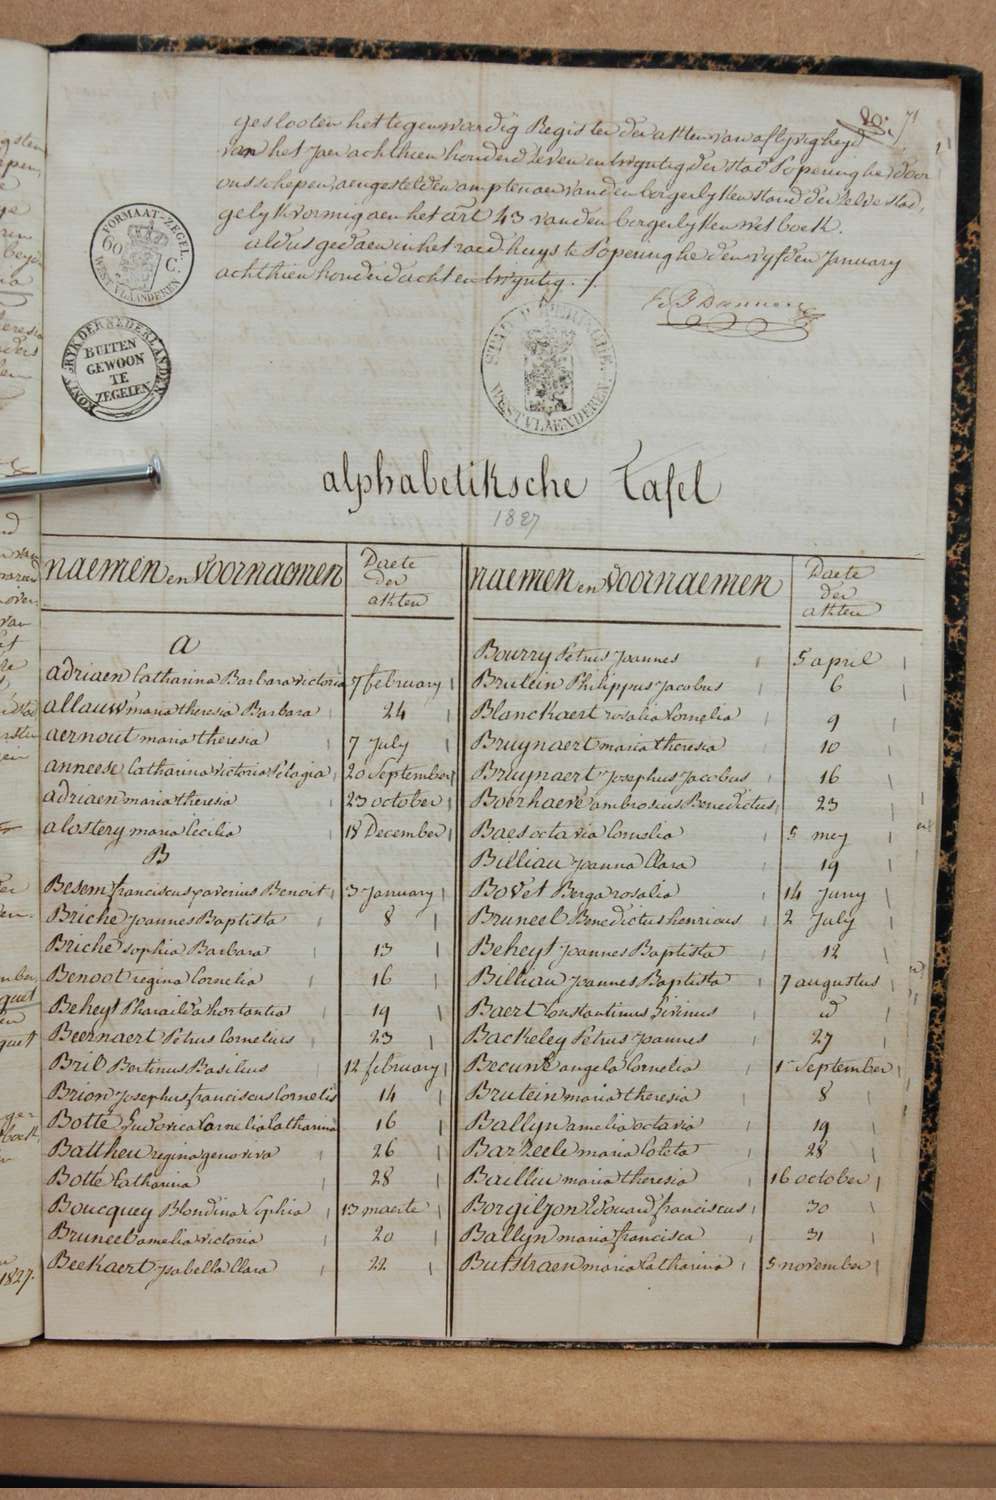 geslooten het tegenwoordig Register der akten van aflyvigheyd
van het jaer achthien honderd zeven en twyntig der stad Poperinghe door
ons schepen, aengestelden amptenaer van den borgerlyken stand der zelve stad,
gelykvormig aen het art 43 van den borgerlyken wetboek.
aldus gedaen in het raedhuys te Poperinghe den vyfden January
achthien honderd acht en twyntig ./.
FORMAAT-ZEGEL
60 C.
WEST-VLAANDEREN
KONINGRYK DER NEDERLANDEN
BUITEN
GEWOON
TE
ZEGELEN
STAD POPERINGHE.
WESTVLAENDEREN.
alphabetiksche Tafel
1827
naemen en voornaemen
Daete der akten
naemen en voornaemen
Daete der akten
a
adriaen Catharina Barbara victoria 7 february
allauw maria theresia Barbara 24
aernout maria theresia 7 july
anneese Catharina victoria Pelagia 20 September
adriaen maria theresia 23 october
alostery maria Cecilia 18 December
B
Besem franciscus xaverius Benoit 3 January
Briche Joannes Baptista 8
Briche sophia Barbara 13
Benoot regina Cornelia 16
Beheyt Pharailda hortantia 19
Beernaert Petrus Cornelius 23
Bril Bertinus Basilius 12 february
Brion Josephus franciscus Cornelis 14
Botte Ludovica Cornelia Catharina 16
Battheu regina genoveva 26
Botte Catharina 28
Boucquey Blondina Sophia 13 maerte
Bruneel amelia victoria 20
Beekaert Isabella Clara 22
Bourry Petrus Joannes 5 april
Brutein Philippus Jacobus 6
Blanckaert rosalia Cornelia 9
Bruynaert maria theresia 10
Bruynaert Josephus Jacobus 16
Boerhaeve ambrosius Benedictus 23
Baes octavia Cornelia 5 mey
Billiau Joanna Clara 19
Bovet Berga rosalia 14 Juny
Bruneel Benedictus henricus 2 July
Beheyt Joannes Baptista 12
Billiau Joannes Baptista 7 augustus
Baert Constantinus Livinus d
Backeley Petrus Joannes 27
Becuwe angela Cornelia 1 September
Brutein maria theresia 8
Ballyn amelia octavia 19
Barzeele maria Coleta 28
Bailliu maria theresia 16 october
Borgiljon Edouard franciscus 30
Ballyn maria francisca 31
Butstraen maria Catharina 5 november
1827.